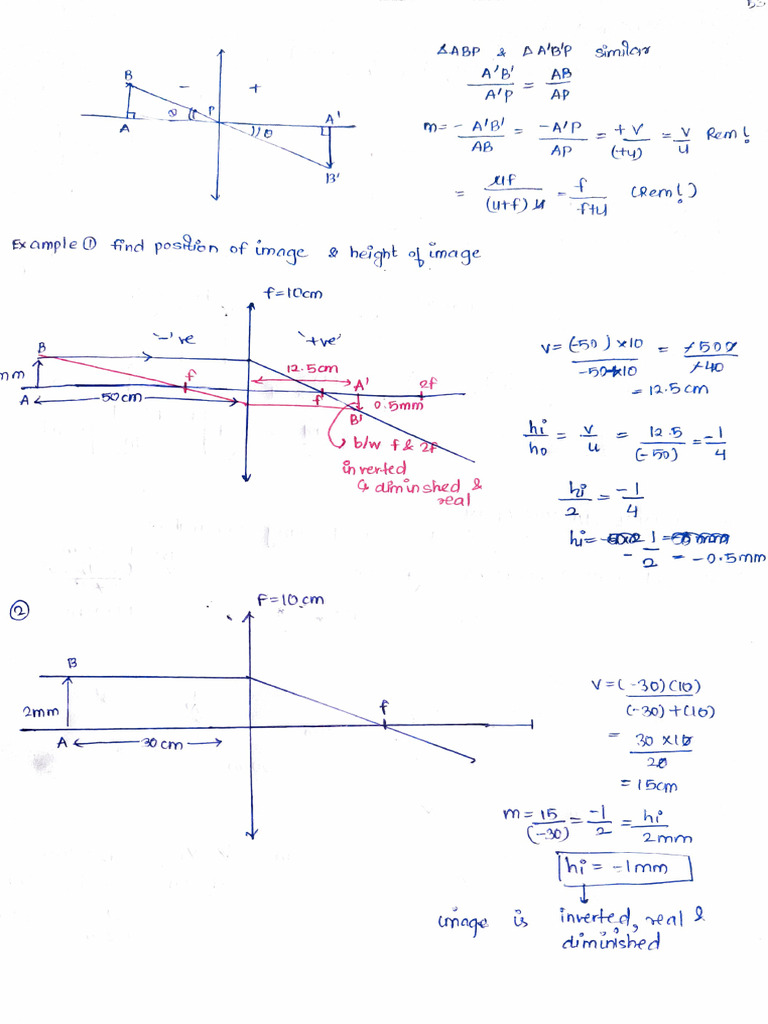 ΔABP & ΔA'B'P similar
B - + A'B'/A'P = AB/AP
A θ P θ A' B'
m = -A'B'/AB = -A'P/AP = +v/(+u) = v/u Rem!
= uf/(u+f)u = f/f+u (Rem!)
Example ① find position of image & height of image
f=10cm
'-'ve '+ve'
B 12.5cm A' 2f
mm f f 0.5mm
A 50cm B'
b/w f & 2f
inverted
& diminshed &
real
v = (-50)×10/-50+10 = -500/-40
= 12.5cm
hi/ho = v/u = 12.5/(-50) = -1/4
hi/2 = -1/4
hi = -1/2 = -0.5mm
②
F=10cm
B
2mm f
A 30cm
v = (-30)(10)/(-30)+(10)
= 30×10/20
= 15cm
m = 15/(-30) = -1/2 = hi/2mm
hi = -1mm
image is inverted, real &
diminished